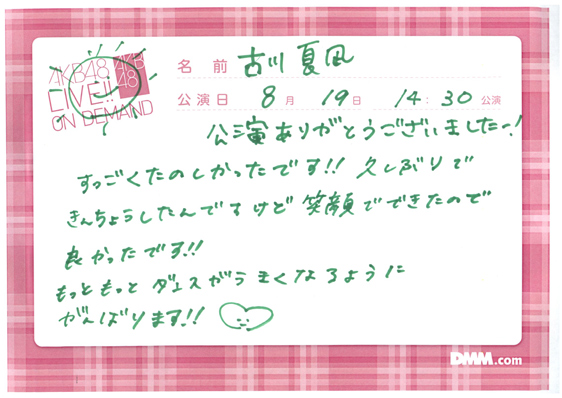 AKB48
LIVE!!
ON DEMAND
AKB
48
名前 古川夏凪
公演日 8月 19日 14:30 公演
公演ありがとうございましたっ!
すっごくたのしかったです!! 久しぶりで
きんちょうしたんですけど 笑顔でできたので
良かったです!!
もっともっと ダンスがうまくなるように
がんばります!!
DMM.com